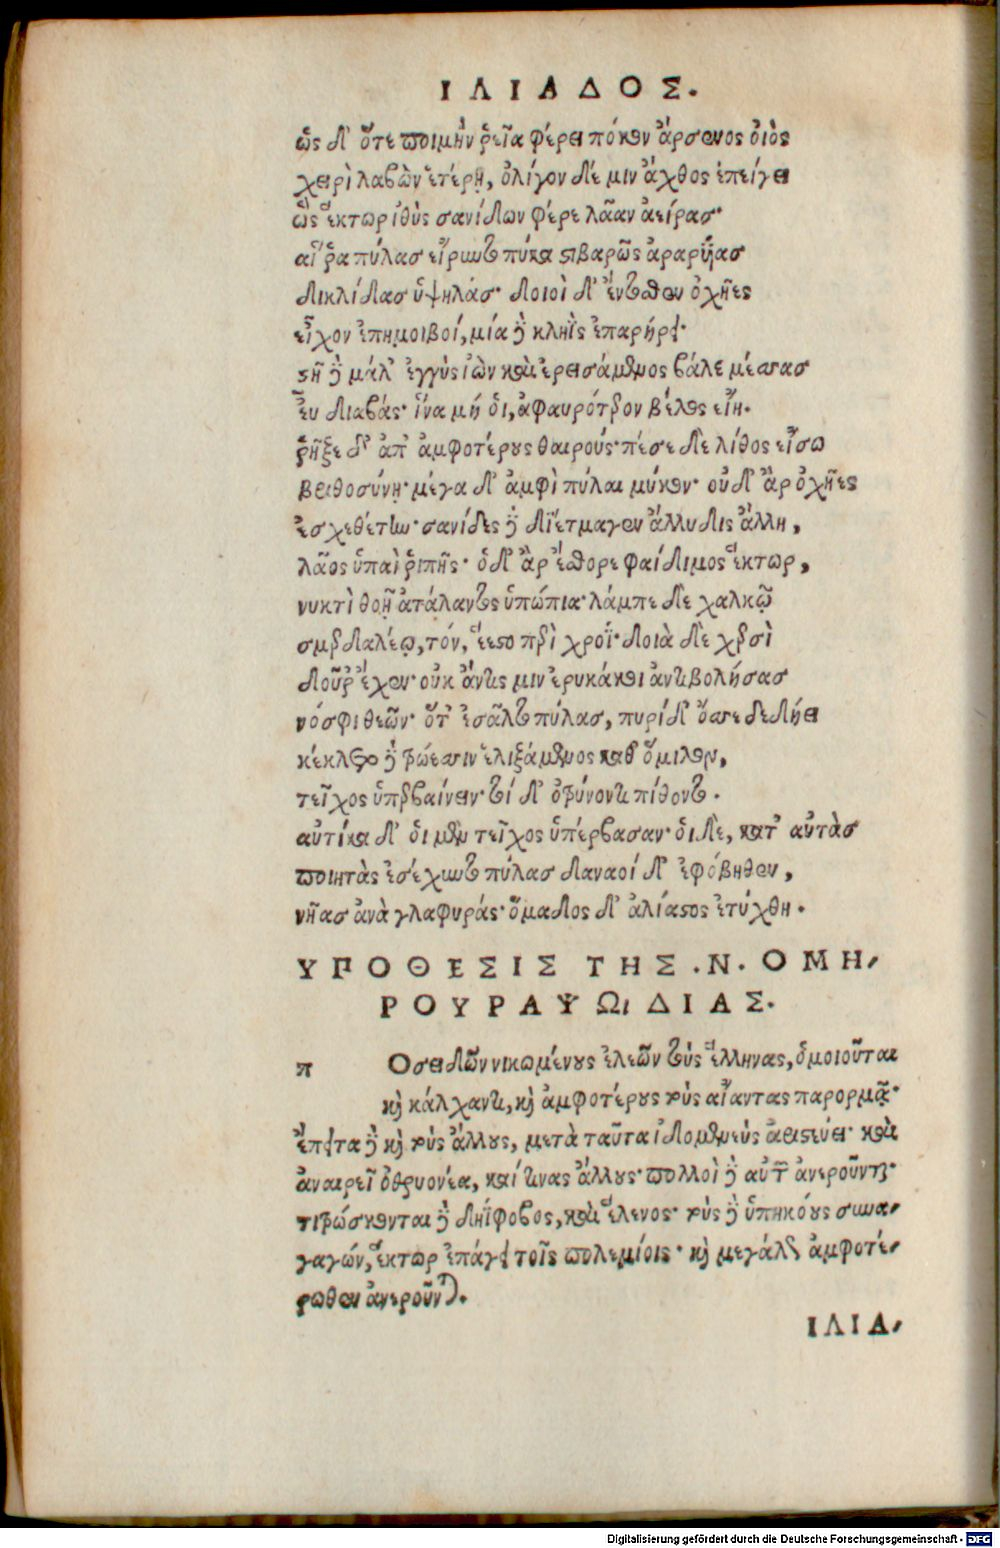 ΙΛΙΑΔΟΣ.
ὡς δ' ὅτε ποιμὴν ῥεῖα φέρει πόκον ἄρσενος οἰὸς
χειρὶ λαβὼν ἑτέρῃ, ὀλίγον δέ μιν ἄχθος ἐπείγει
ὣς ἕκτωρ ἰθὺς σανίδων φέρε λᾶαν ἀείρας·
αἵ ῥα πύλας εἴρυντο πύκα στιβαρῶς ἀραρυίας
δικλίδας ὑψηλάς· δοιοὶ δ' ἔντοσθεν ὀχῆες
εἶχον ἐπημοιβοί, μία δὲ κληῒς ἐπαρήρει·
στῆ δὲ μάλ' ἐγγὺς ἰὼν καὶ ἐρεισάμενος βάλε μέσσας
εὖ διαβάς· ἵνα μή οἱ, ἀφαυρότερον βέλος εἴη.
ῥῆξε δ' ἀπ' ἀμφοτέρους θαιρούς· πέσε δὲ λίθος εἴσω
βριθοσύνῃ· μέγα δ' ἀμφὶ πύλαι μύκον· οὐδ' ἂρ ὀχῆες
ἐσχεθέτην· σανίδες δὲ διέτμαγεν ἄλλυδις ἄλλη,
λᾶος ὑπαὶ ῥιπῆς· ὁ δ' ἂρ ἔσθορε φαίδιμος ἕκτωρ,
νυκτὶ θοῇ ἀτάλαντος ὑπώπια· λάμπε δὲ χαλκῷ
σμερδαλέῳ, τόν, ἕεστο περὶ χροΐ· δοιὰ δὲ χερσὶ
δοῦρ' ἔχεν· οὐκ ἄν τις μιν ἐρυκάκοι ἀντιβολήσας
νόσφι θεῶν· ὅτ' ἐσᾶλτο πύλας, πυρὶ δ' ὄσσε δεδήει
κέκλετο δὲ τρώεσσιν ἑλιξάμενος καθ' ὅμιλον,
τεῖχος ὑπερβαίνειν· τοὶ δ' ὀτρύνοντι πίθοντο.
αὐτίκα δ' οἱ μὲν τεῖχος ὑπέρβασαν· οἱ δὲ, κατ' αὐτὰς
ποιητὰς ἐσέχυντο πύλας δαναοί δ' ἐφόβηθεν,
νῆας ἀνὰ γλαφυράς· ὅμαδος δ' ἀλίαστος ἐτύχθη.
ΥΠΟΘΕΣΙΣ ΤΗΣ .Ν. ΟΜΗ-
ΡΟΥ ΡΑΨΩΙΔΙΑΣ.
π Οσειδῶν νικωμένους ἐλεῶν τοὺς ἕλληνας, ὁμοιοῦται
καὶ κάλχαντι, καὶ ἀμφοτέρους τοὺς αἴαντας παρορμᾷ·
ἔπειτα δὲ καὶ τοὺς ἄλλους, μετὰ ταῦτα ἰδομενεὺς ἀριστεύει· καὶ
ἀναιρεῖ ὀθρυονέα, καί τινας ἄλλους· πολλοὶ δὲ αὐτῶν ἀναιροῦνται·
τιτρώσκονται δὲ δηΐφοβος, καὶ ἕλενος· τοὺς δὲ ὑπηκόους συνα-
γαγών, ἕκτωρ ἐπάγει τοῖς πολεμίοις· καὶ μεγάλως ἀμφοτέ-
ρωθεν ἀναιροῦνται.
ΙΛΙΑ-
Digitalisierung gefördert durch die Deutsche Forschungsgemeinschaft - DFG